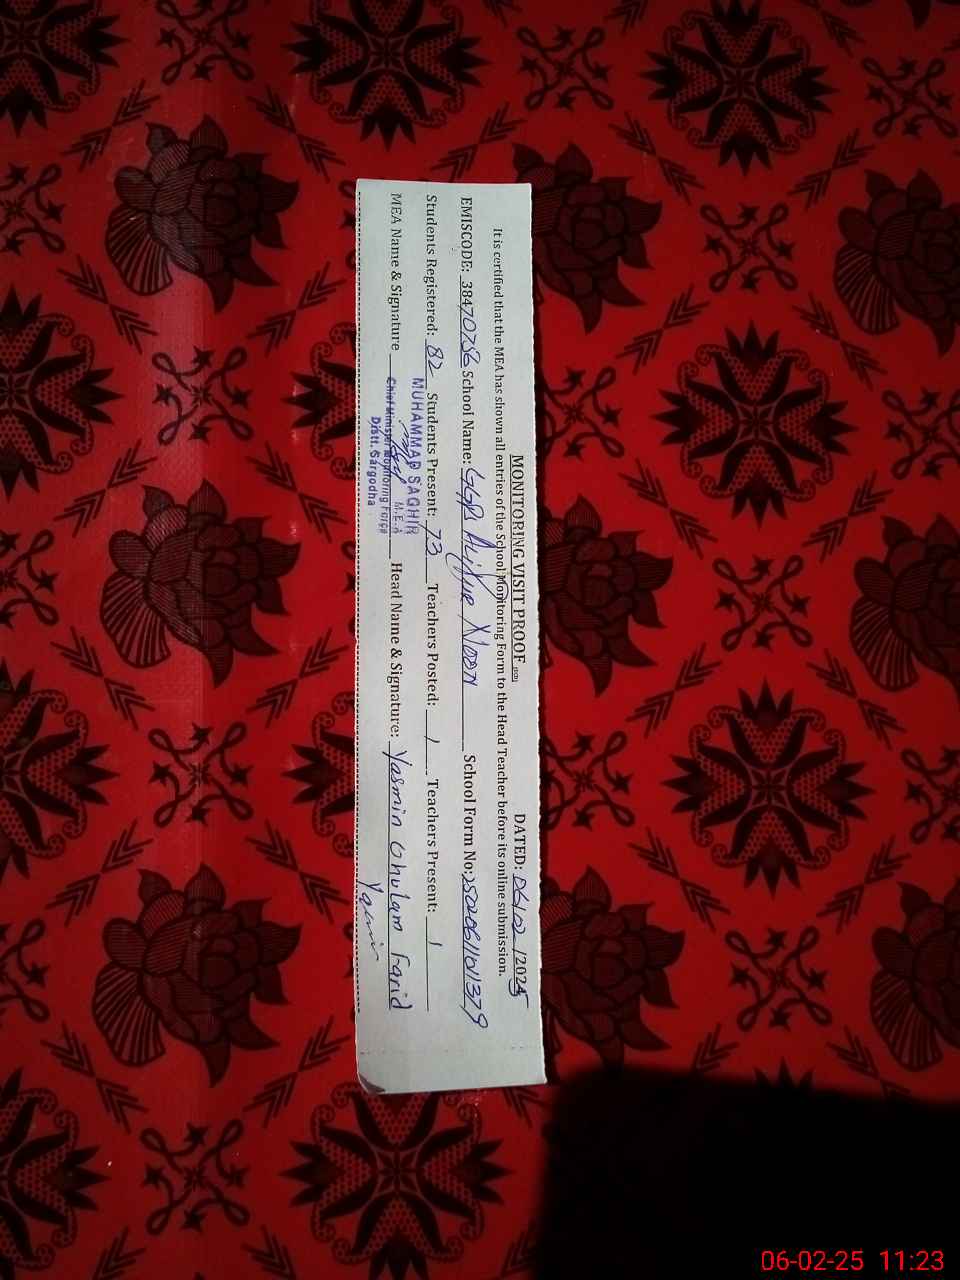 MONITORING VISIT PROOF DATED: 06/02/2025
It is certified that the MEA has shown all entries of the School Monitoring Form to the Head Teacher before its online submission.
EMISCODE: 38470756 School Name: GGPS Noon School Form No: 2502061101379
Students Registered: 82 Students Present: 73 Teachers Posted: 1 Teachers Present: 1
MEA Name & Signature Head Name & Signature: Yasmin Ghulam Farid
Yasmin
MUHAMMAD SAGHIR
M.E.A
Chief Minister Monitoring Force
Distt. Sargodha
06-02-25 11:23